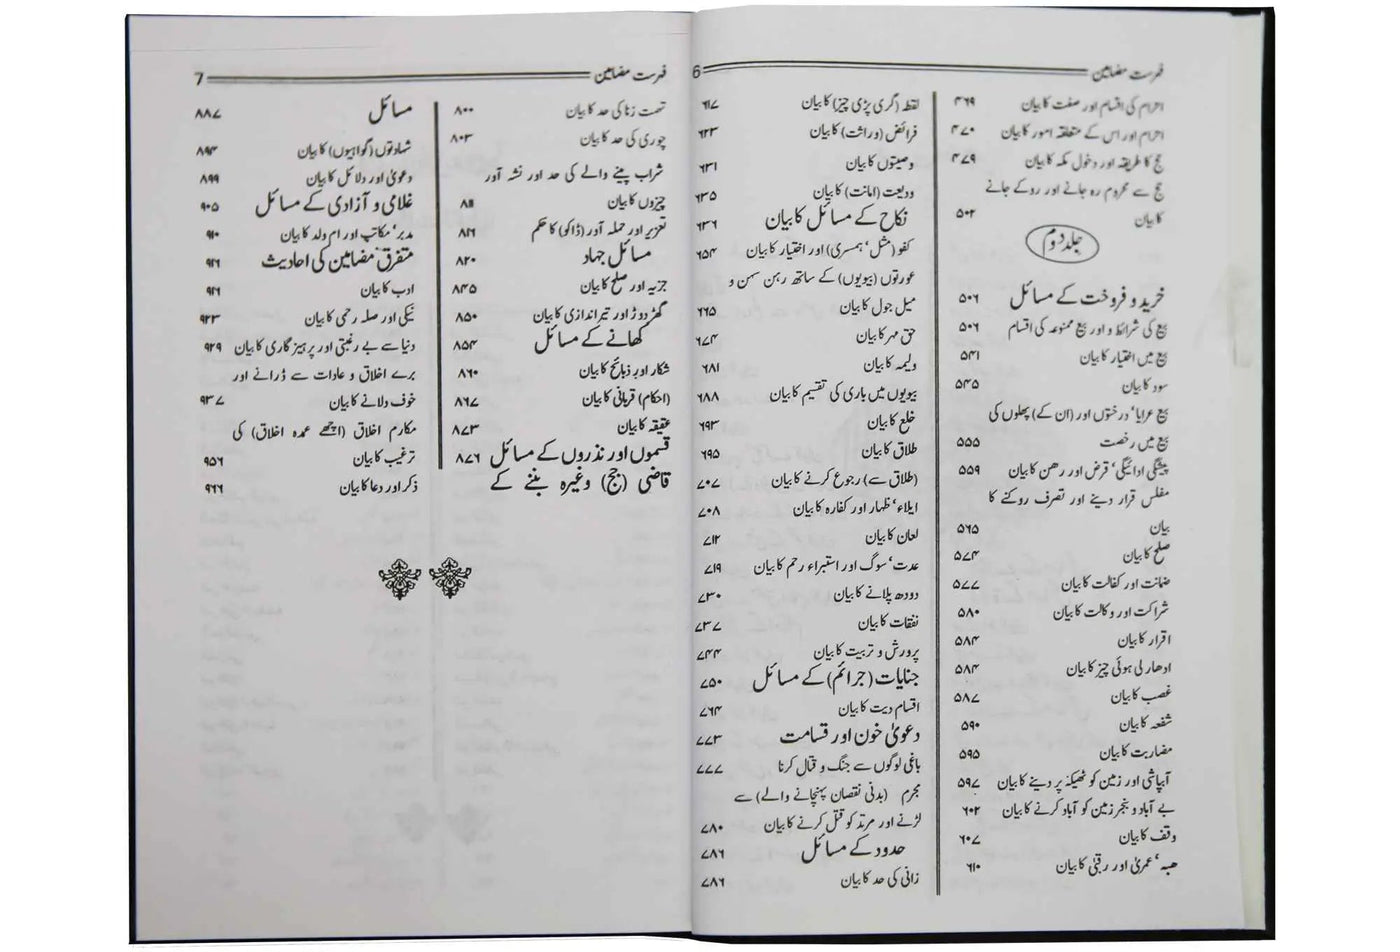 فہرست مضامین 6
احرام کی اقسام اور صفت کا بیان ۴۶۹
احرام اور اس کے متعلقہ امور کا بیان ۴۷۰
حج کا طریقہ اور دخول مکہ کا بیان ۴۷۹
حج سے محروم رہ جانے اور روکے جانے
کا بیان ۵۰۲
جلد دوم
خرید و فروخت کے مسائل ۵۰۶
بیع کی شرائط و اور بیع ممنوعہ کی اقسام ۵۰۶
بیع میں اختیار کا بیان ۵۴۱
سود کا بیان ۵۴۵
بیع عرایا‘ درختوں اور (ان کے) پھلوں کی
بیع میں رخصت ۵۵۵
پیشگی ادائیگی‘ قرض اور رھن کا بیان ۵۵۹
مفلس قرار دینے اور تصرف روکنے کا
بیان ۵۶۵
صلح کا بیان ۵۷۴
ضمانت اور کفالت کا بیان ۵۷۷
شراکت اور وکالت کا بیان ۵۸۰
اقرار کا بیان ۵۸۴
ادھار لی ہوئی چیز کا بیان ۵۸۴
غصب کا بیان ۵۸۷
شفعہ کا بیان ۵۹۰
مضاربت کا بیان ۵۹۵
آبپاشی اور زمین کو ٹھیکہ پر دینے کا بیان ۵۹۷
بے آباد و بنجر زمین کو آباد کرنے کا بیان ۶۰۲
وقف کا بیان ۶۰۷
ھبہ‘ عمریٰ اور رقبیٰ کا بیان ۶۱۰
لقطہ (گری پڑی چیز) کا بیان ۶۱۷
فرائض (وراثت) کا بیان ۶۲۳
وصیتوں کا بیان ۶۳۱
ودیعت (امانت) کا بیان ۶۳۵
نکاح کے مسائل کا بیان ۶۳۶
کفو (مثل‘ ہمسری) اور اختیار کا بیان ۶۵۴
عورتوں (بیویوں) کے ساتھ رہن سہن و
میل جول کا بیان ۶۶۵
حق مہر کا بیان ۶۷۴
ولیمہ کا بیان ۶۸۱
بیویوں میں باری کی تقسیم کا بیان ۶۸۸
خلع کا بیان ۶۹۳
طلاق کا بیان ۶۹۵
(طلاق سے) رجوع کرنے کا بیان ۷۰۷
ایلاء‘ ظہار اور کفارہ کا بیان ۷۰۸
لعان کا بیان ۷۱۲
عدت‘ سوگ اور استبراء رحم کا بیان ۷۱۹
دودھ پلانے کا بیان ۷۳۰
نفقات کا بیان ۷۳۷
پرورش و تربیت کا بیان ۷۴۴
جنایات (جرائم) کے مسائل ۷۵۰
اقسام دیت کا بیان ۷۶۴
دعویٰ خون اور قسامت ۷۷۳
باغی لوگوں سے جنگ و قتال کرنا ۷۷۷
مجرم (بدنی نقصان پہنچانے والے) سے
لڑنے اور مرتد کو قتل کرنے کا بیان ۷۸۰
حدود کے مسائل ۷۸۶
زانی کی حد کا بیان ۷۸۶
فہرست مضامین 7
تہمت زنا کی حد کا بیان ۸۰۰
چوری کی حد کا بیان ۸۰۳
شراب پینے والے کی حد اور نشہ آور
چیزوں کا بیان ۸۱۱
تعزیر اور حملہ آور (ڈاکو) کا حکم ۸۱۶
مسائل جہاد ۸۲۰
جزیہ اور صلح کا بیان ۸۴۵
گھڑ دوڑ اور تیر اندازی کا بیان ۸۵۰
کھانے کے مسائل ۸۵۴
شکار اور ذبائح کا بیان ۸۶۰
(احکام) قربانی کا بیان ۸۶۷
عقیقہ کا بیان ۸۷۳
قسموں اور نذروں کے مسائل ۸۷۶
قاضی (جج) وغیرہ بننے کے
مسائل ۸۸۷
شہادتوں (گواہیوں) کا بیان ۸۹۴
دعویٰ اور دلائل کا بیان ۸۹۹
غلامی و آزادی کے مسائل ۹۰۵
مدبر‘ مکاتب اور ام ولد کا بیان ۹۱۰
متفرق مضامین کی احادیث ۹۱۶
ادب کا بیان ۹۱۶
نیکی اور صلہ رحمی کا بیان ۹۲۳
دنیا سے بے رغبتی اور پرہیزگاری کا بیان ۹۲۹
برے اخلاق و عادات سے ڈرانے اور
خوف دلانے کا بیان ۹۳۷
مکارم اخلاق (اچھے عمدہ اخلاق) کی
ترغیب کا بیان ۹۵۶
ذکر اور دعا کا بیان ۹۶۶